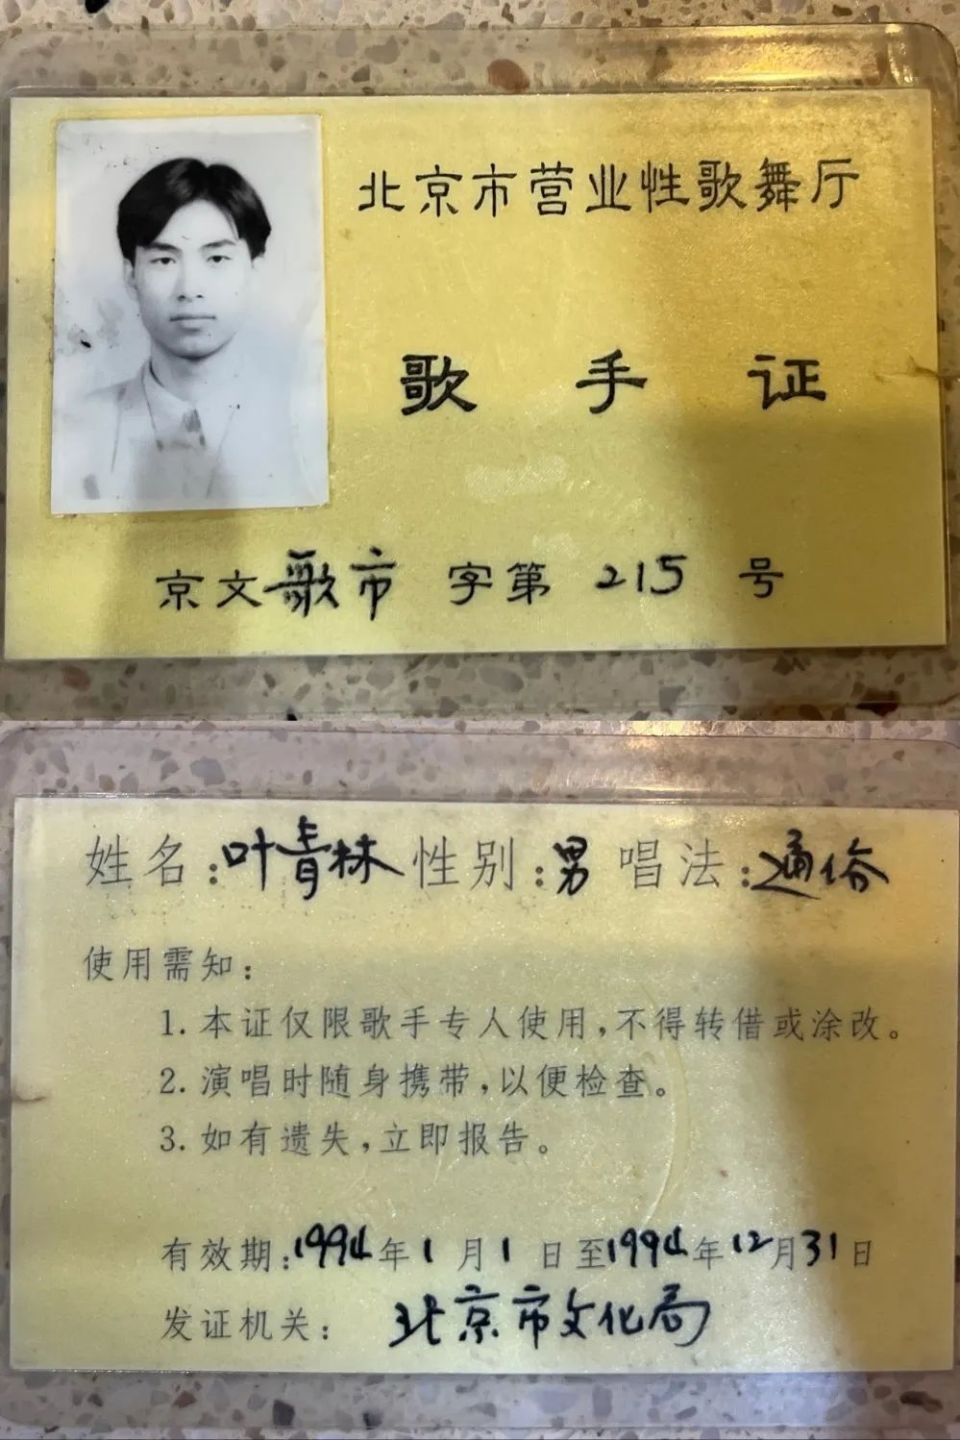 北京市营业性歌舞厅
歌手证
京文歌市字第215号
姓名:叶青林 性别:男 唱法:通俗
使用需知:
1.本证仅限歌手专人使用,不得转借或涂改。
2.演唱时随身携带,以便检查。
3.如有遗失,立即报告。
有效期:1994年1月1日至1994年12月31日
发证机关:北京市文化局